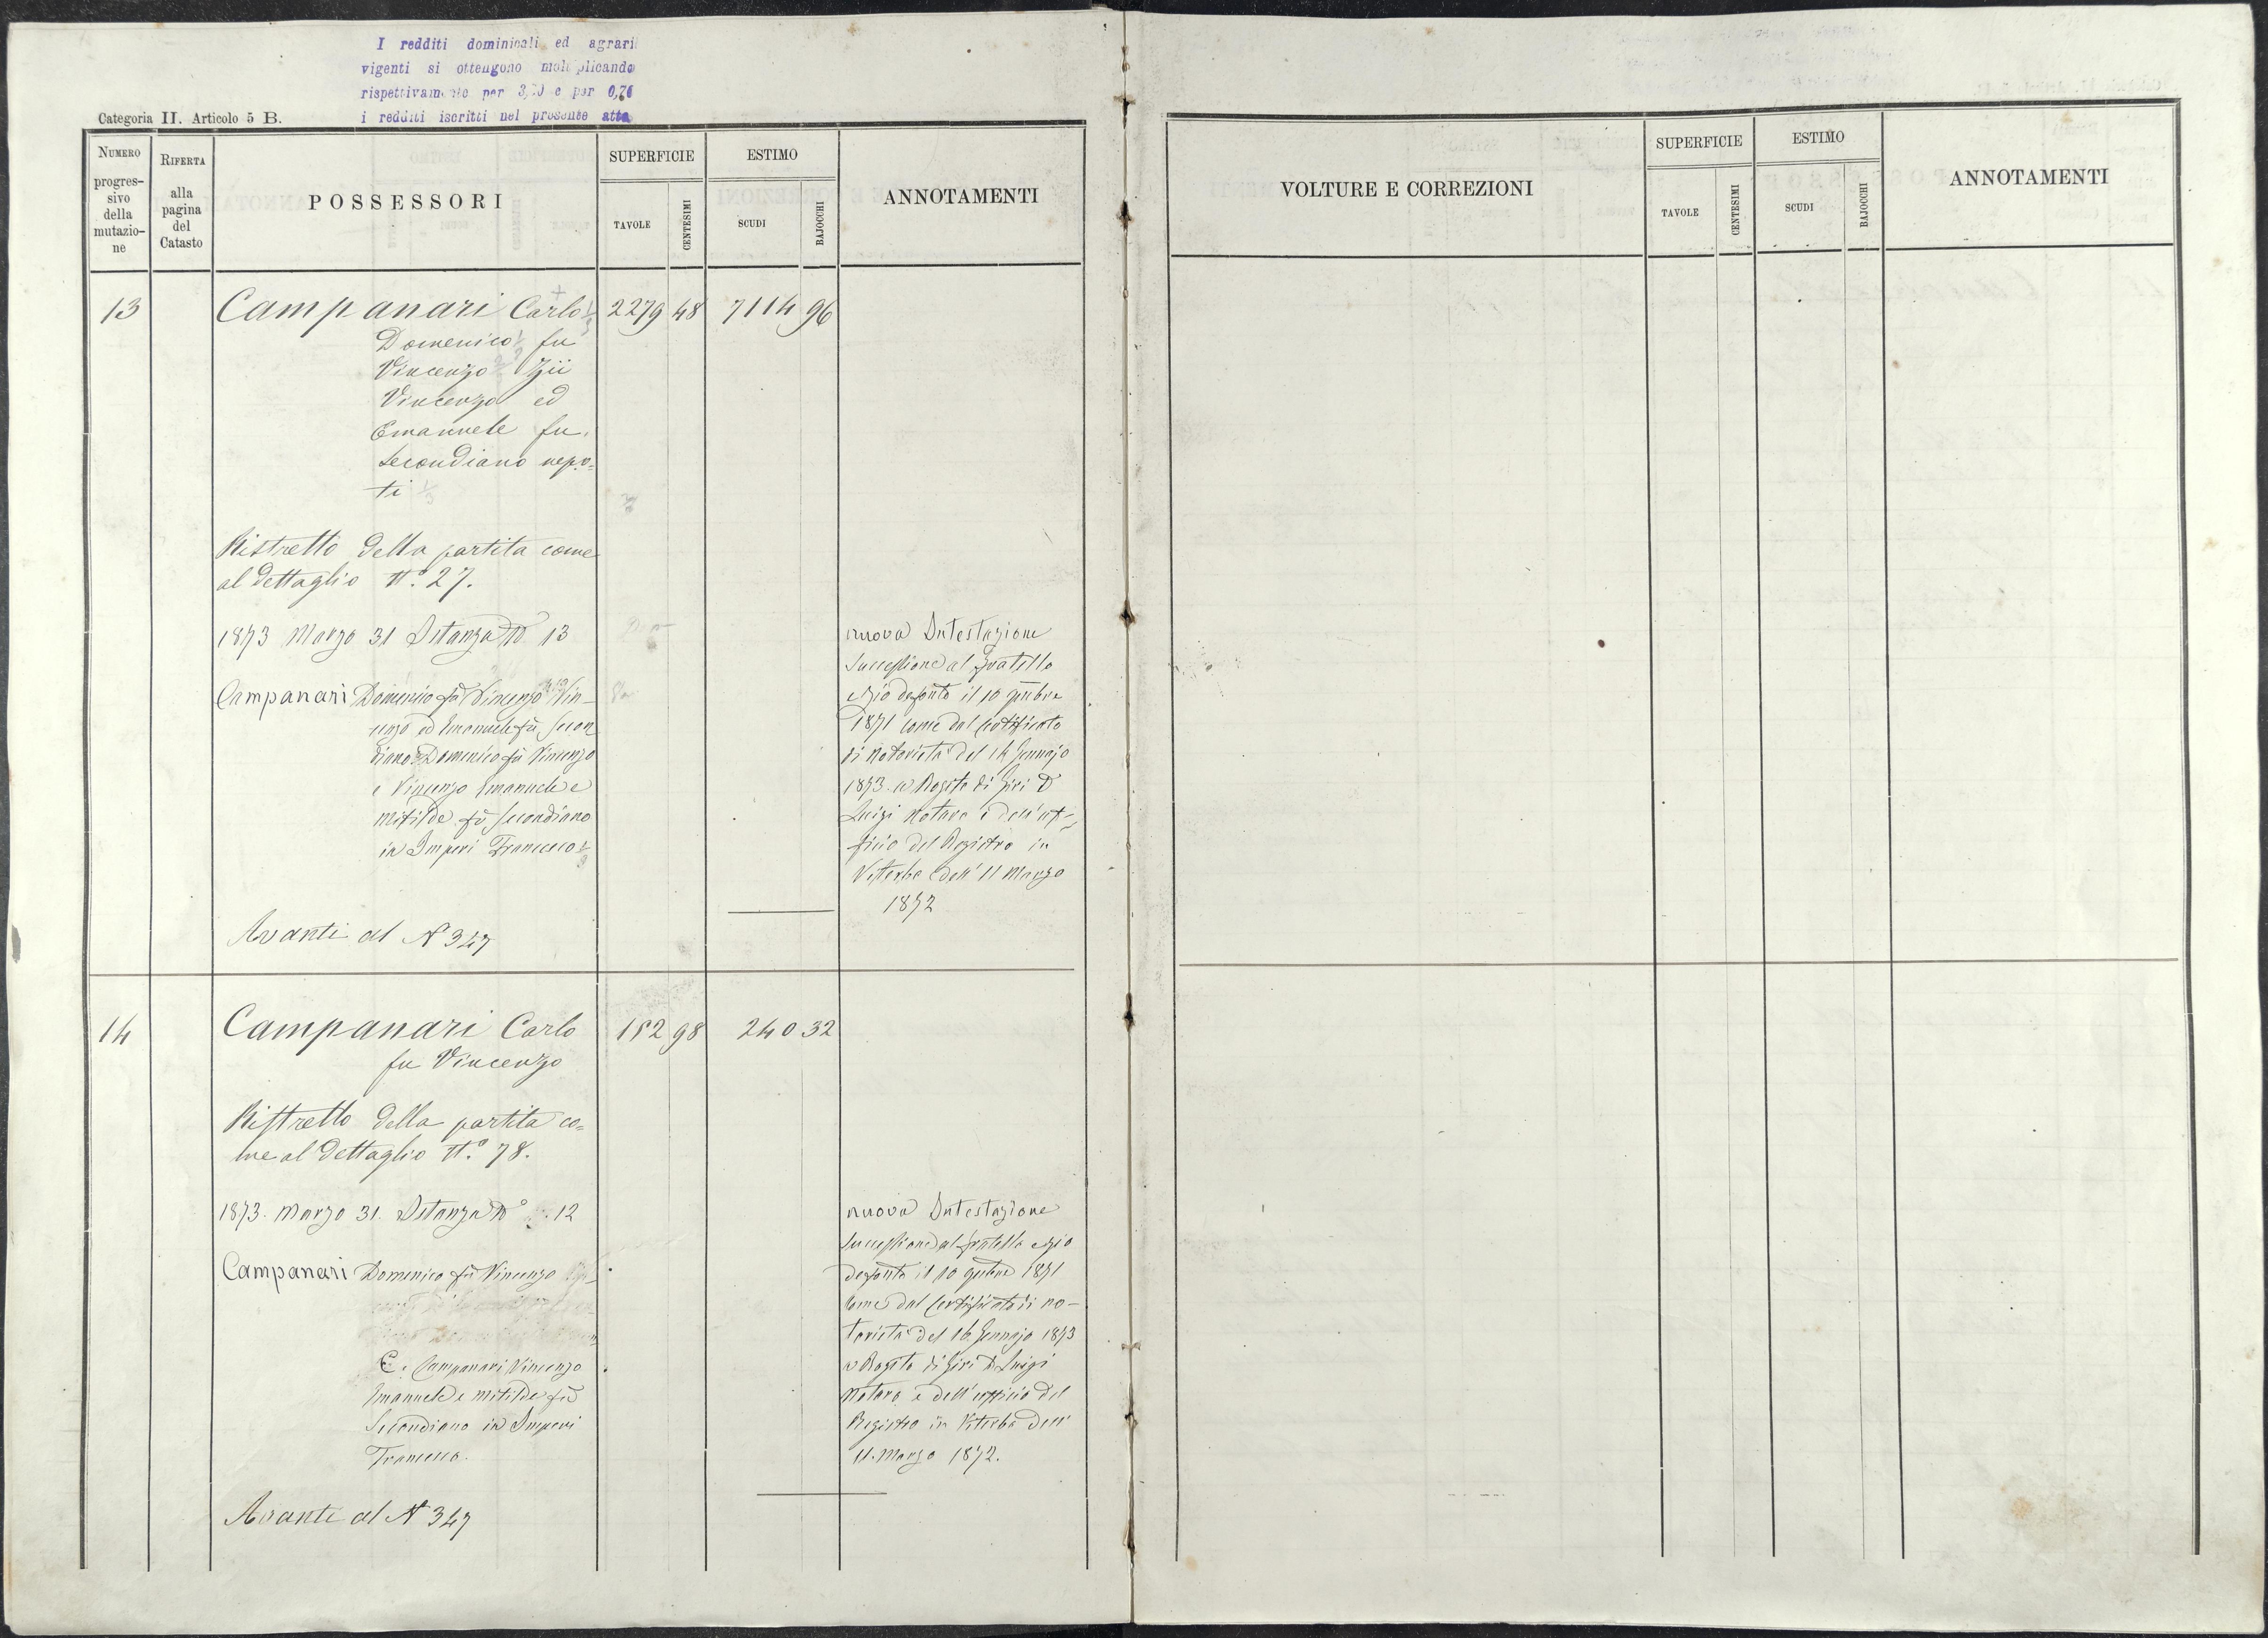 I redditi dominicali ed agrari
vigenti si ottengono moltiplicando
rispettivamente per e per 0,76
i redditi iscritti nel presente atto
Categoria II. Articolo 5 B.
NUMERO
progres-
sivo
della
mutazio-
ne
RIFERTA
alla
pagina
del
Catasto
POSSESSORI
SUPERFICIE
TAVOLE
CENTESIMI
ESTIMO
SCUDI
BAJOCCHI
ANNOTAMENTI
13
Campanari Carlo 1/3
2279 48 7114 96
Domenico 1/3 fu
Vincenzo Zii
Vincenzo ed
Emanuele fu
Secondiano nepo=
ti 1/3
Ristretto della partita come
al dettaglio N.° 27.
1873 Marzo 31 Istanza N° 13
Campanari Domenico fù Vincenzo Vin-
cenzo ed Emanuele fù Secon
diano Domenico fù Vincenzo
e Vincenzo Emanuele e
Mitilde fù Secondiano
in Imperi Francesco 1/3
Avanti al N 347
nuova Intestazione
Successione al fratello
e zio defonto il 10 9mbre
1871 come dal certificato
di notorietà del 16 Gennajo
1873 a Rogito di Giri D
Luigi Notaro e dell'uf-
ficio del Registro in
Viterbo dell' 11 Marzo
1872
14
Campanari Carlo
152 98 240 32
fu Vincenzo
Ristretto della partita co=
me al dettaglio N.° 78.
1873. Marzo 31. Istanza N° 12
Campanari Domenico fù Vincenzo
E. Campanari Vincenzo
Emanuele e Mitilde fù
Secondiano in Imperi
Francesco.
Avanti al N 347
nuova Intestazione
Successione al fratello e zio
defonto il 10 9mbre 1871
come dal certificato di no-
torietà del 16 Gennajo 1873
a Rogito di Giri D Luigi
Notaro e dell'ufficio del
Registro in Viterbo dell'
11. Marzo 1872.
VOLTURE E CORREZIONI
SUPERFICIE
TAVOLE
CENTESIMI
ESTIMO
SCUDI
BAJOCCHI
ANNOTAMENTI